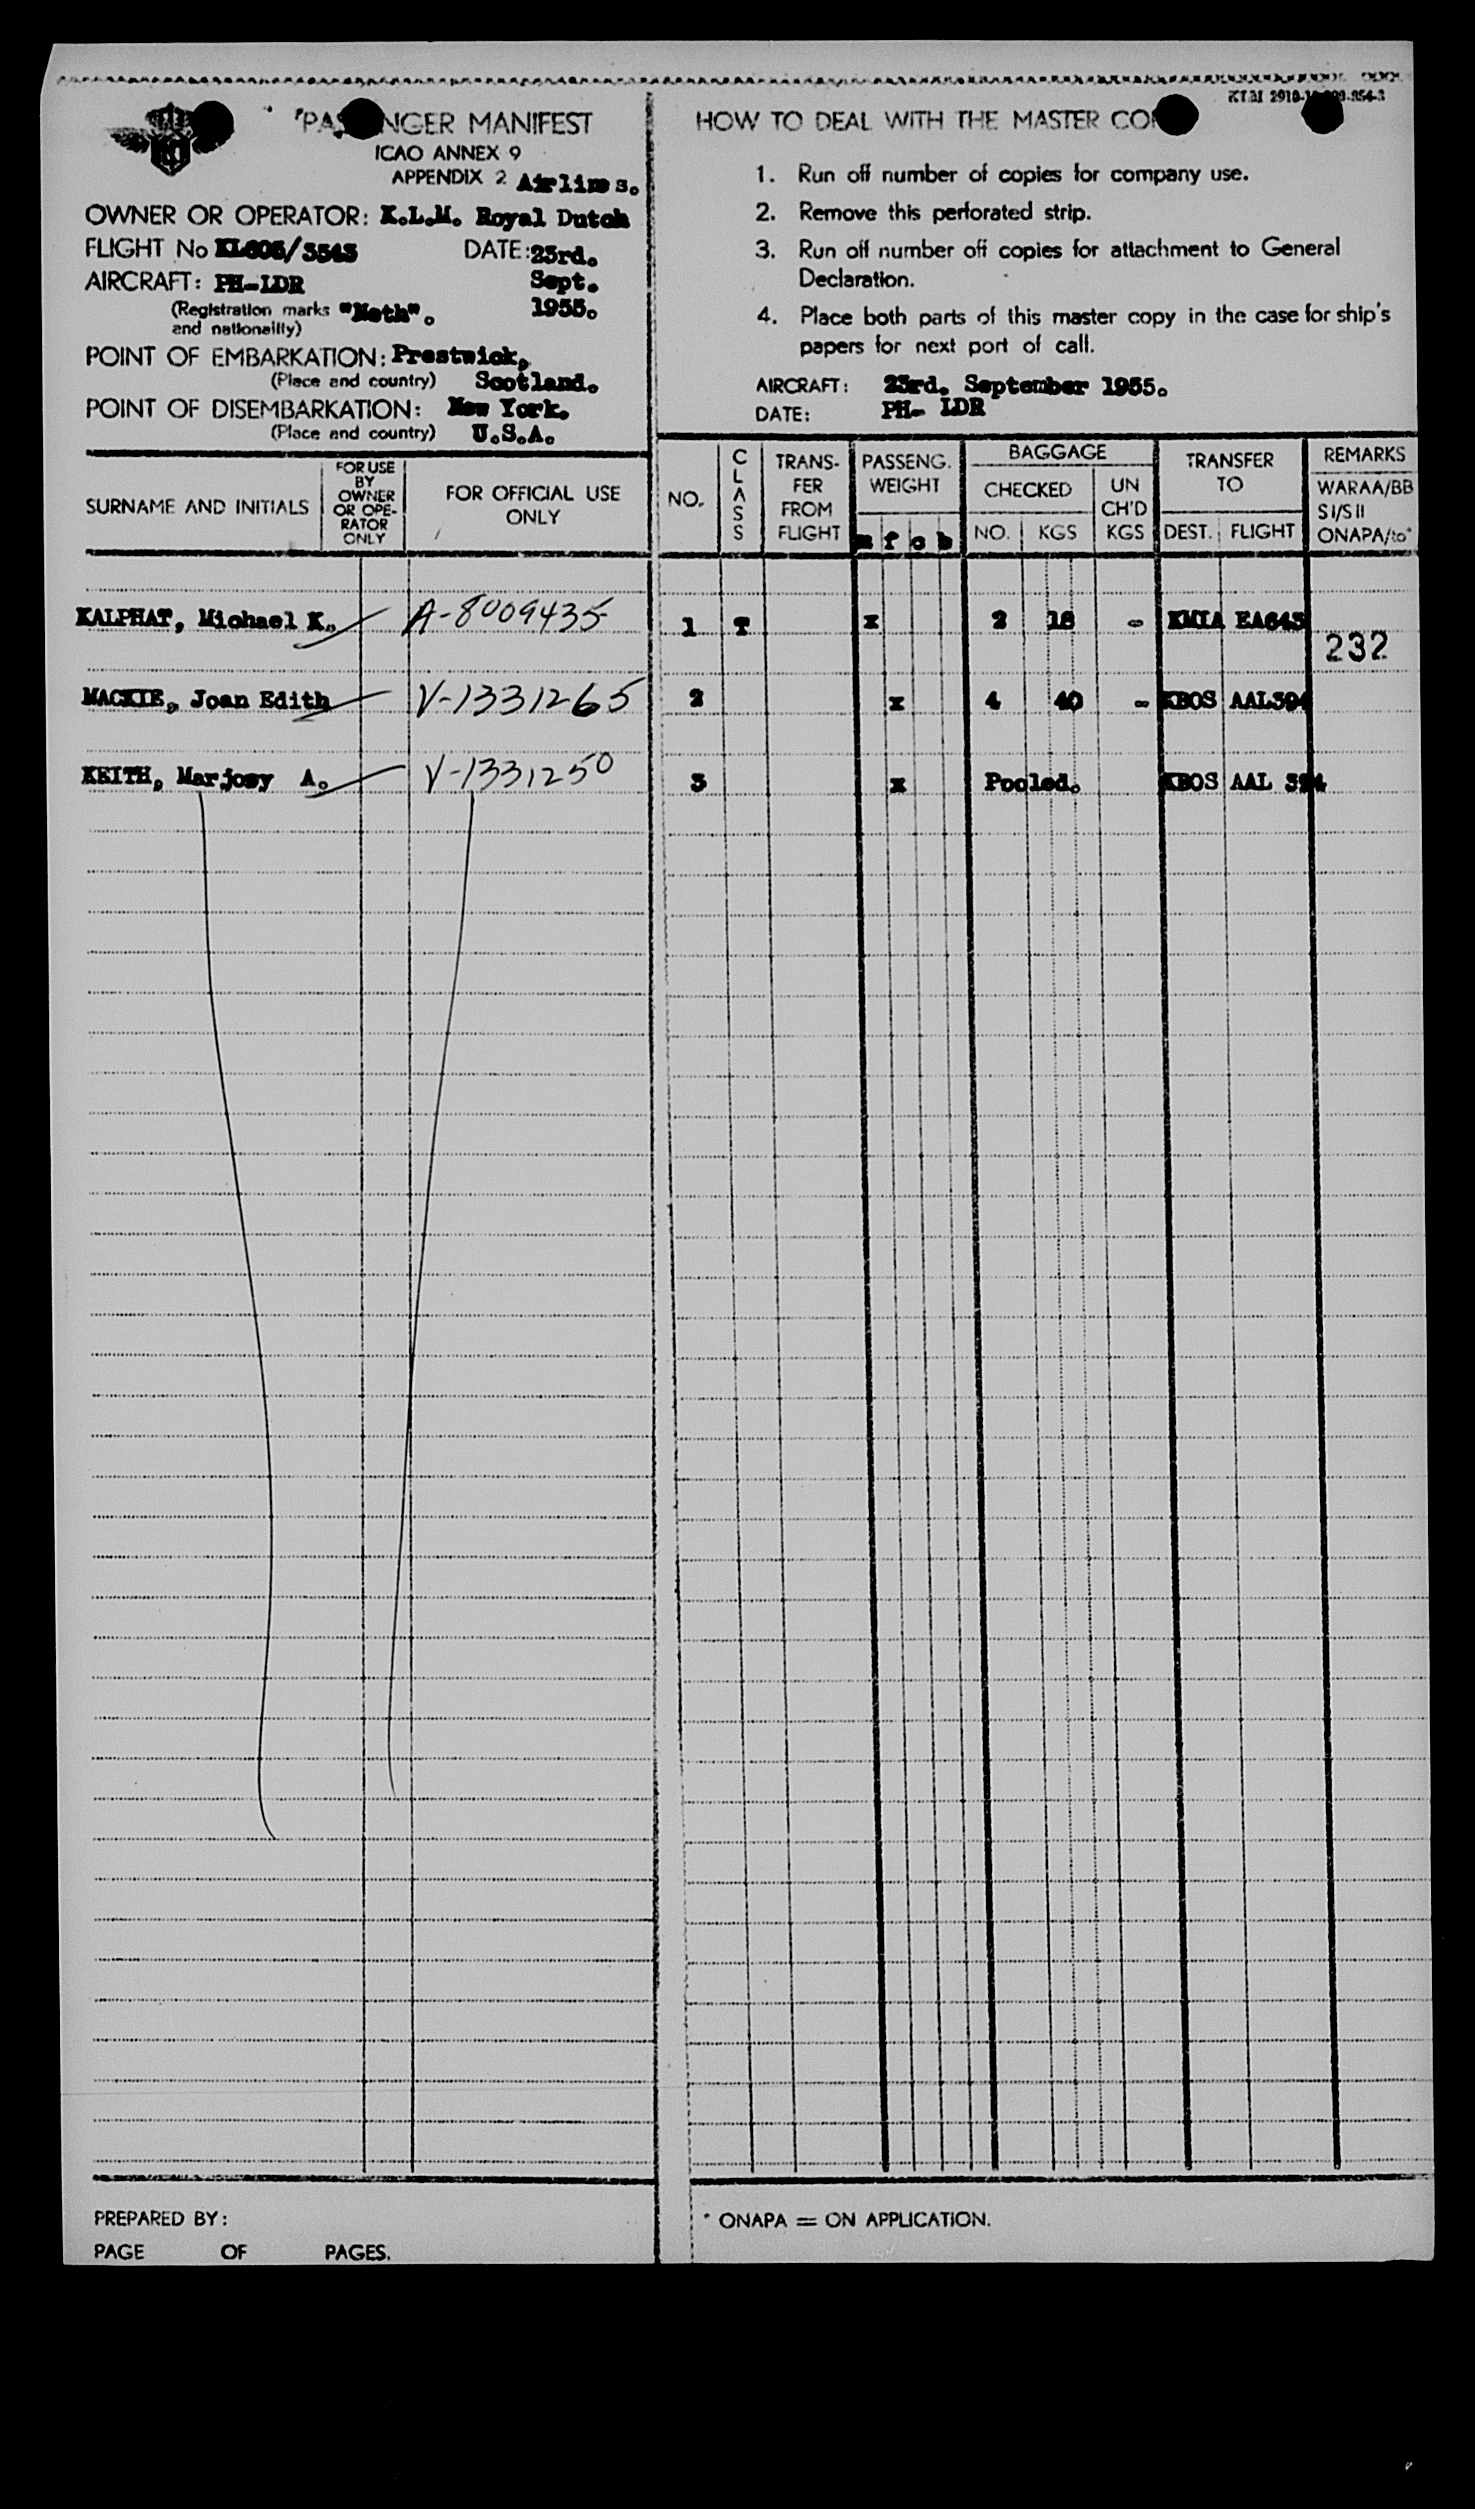 PASSENGER MANIFEST
ICAO ANNEX 9
APPENDIX 2 Airlines.
OWNER OR OPERATOR: K.L.M. Royal Dutch
FLIGHT No KL605/3543 DATE: 23rd.
AIRCRAFT: PH-LDR Sept.
(Registration marks "Neth". 1955.
and nationality)
POINT OF EMBARKATION: Prestwick,
(Place and country) Scotland.
POINT OF DISEMBARKATION: New York.
(Place and country) U.S.A.
HOW TO DEAL WITH THE MASTER
1. Run off number of copies for company use.
2. Remove this perforated strip.
3. Run off number off copies for attachment to General
Declaration.
4. Place both parts of this master copy in the case for ship's
papers for next port of call.
AIRCRAFT: 23rd. September 1955.
DATE: PH- LDR
SURNAME AND INITIALS
FOR USE
BY
OWNER
OR OPE-
RATOR
ONLY
FOR OFFICIAL USE
ONLY
NO.
CLASS
TRANS-
FER
FROM
FLIGHT
PASSENG.
WEIGHT
m f c b
BAGGAGE
CHECKED
NO. KGS
UN
CH'D
KGS
TRANSFER
TO
DEST. FLIGHT
REMARKS
WARAA/BB
SI/SII
ONAPA/to*
KALPHAT, Michael K. A-8009435 1 T x 2 18 - KMIA EA643
232
MACKIE, Joan Edith V-1331265 2 x 4 40 - KBOS AAL394
KEITH, Marjory A. V-1331250 3 x Pooled. KBOS AAL 394
PREPARED BY:
PAGE OF PAGES.
* ONAPA = ON APPLICATION.